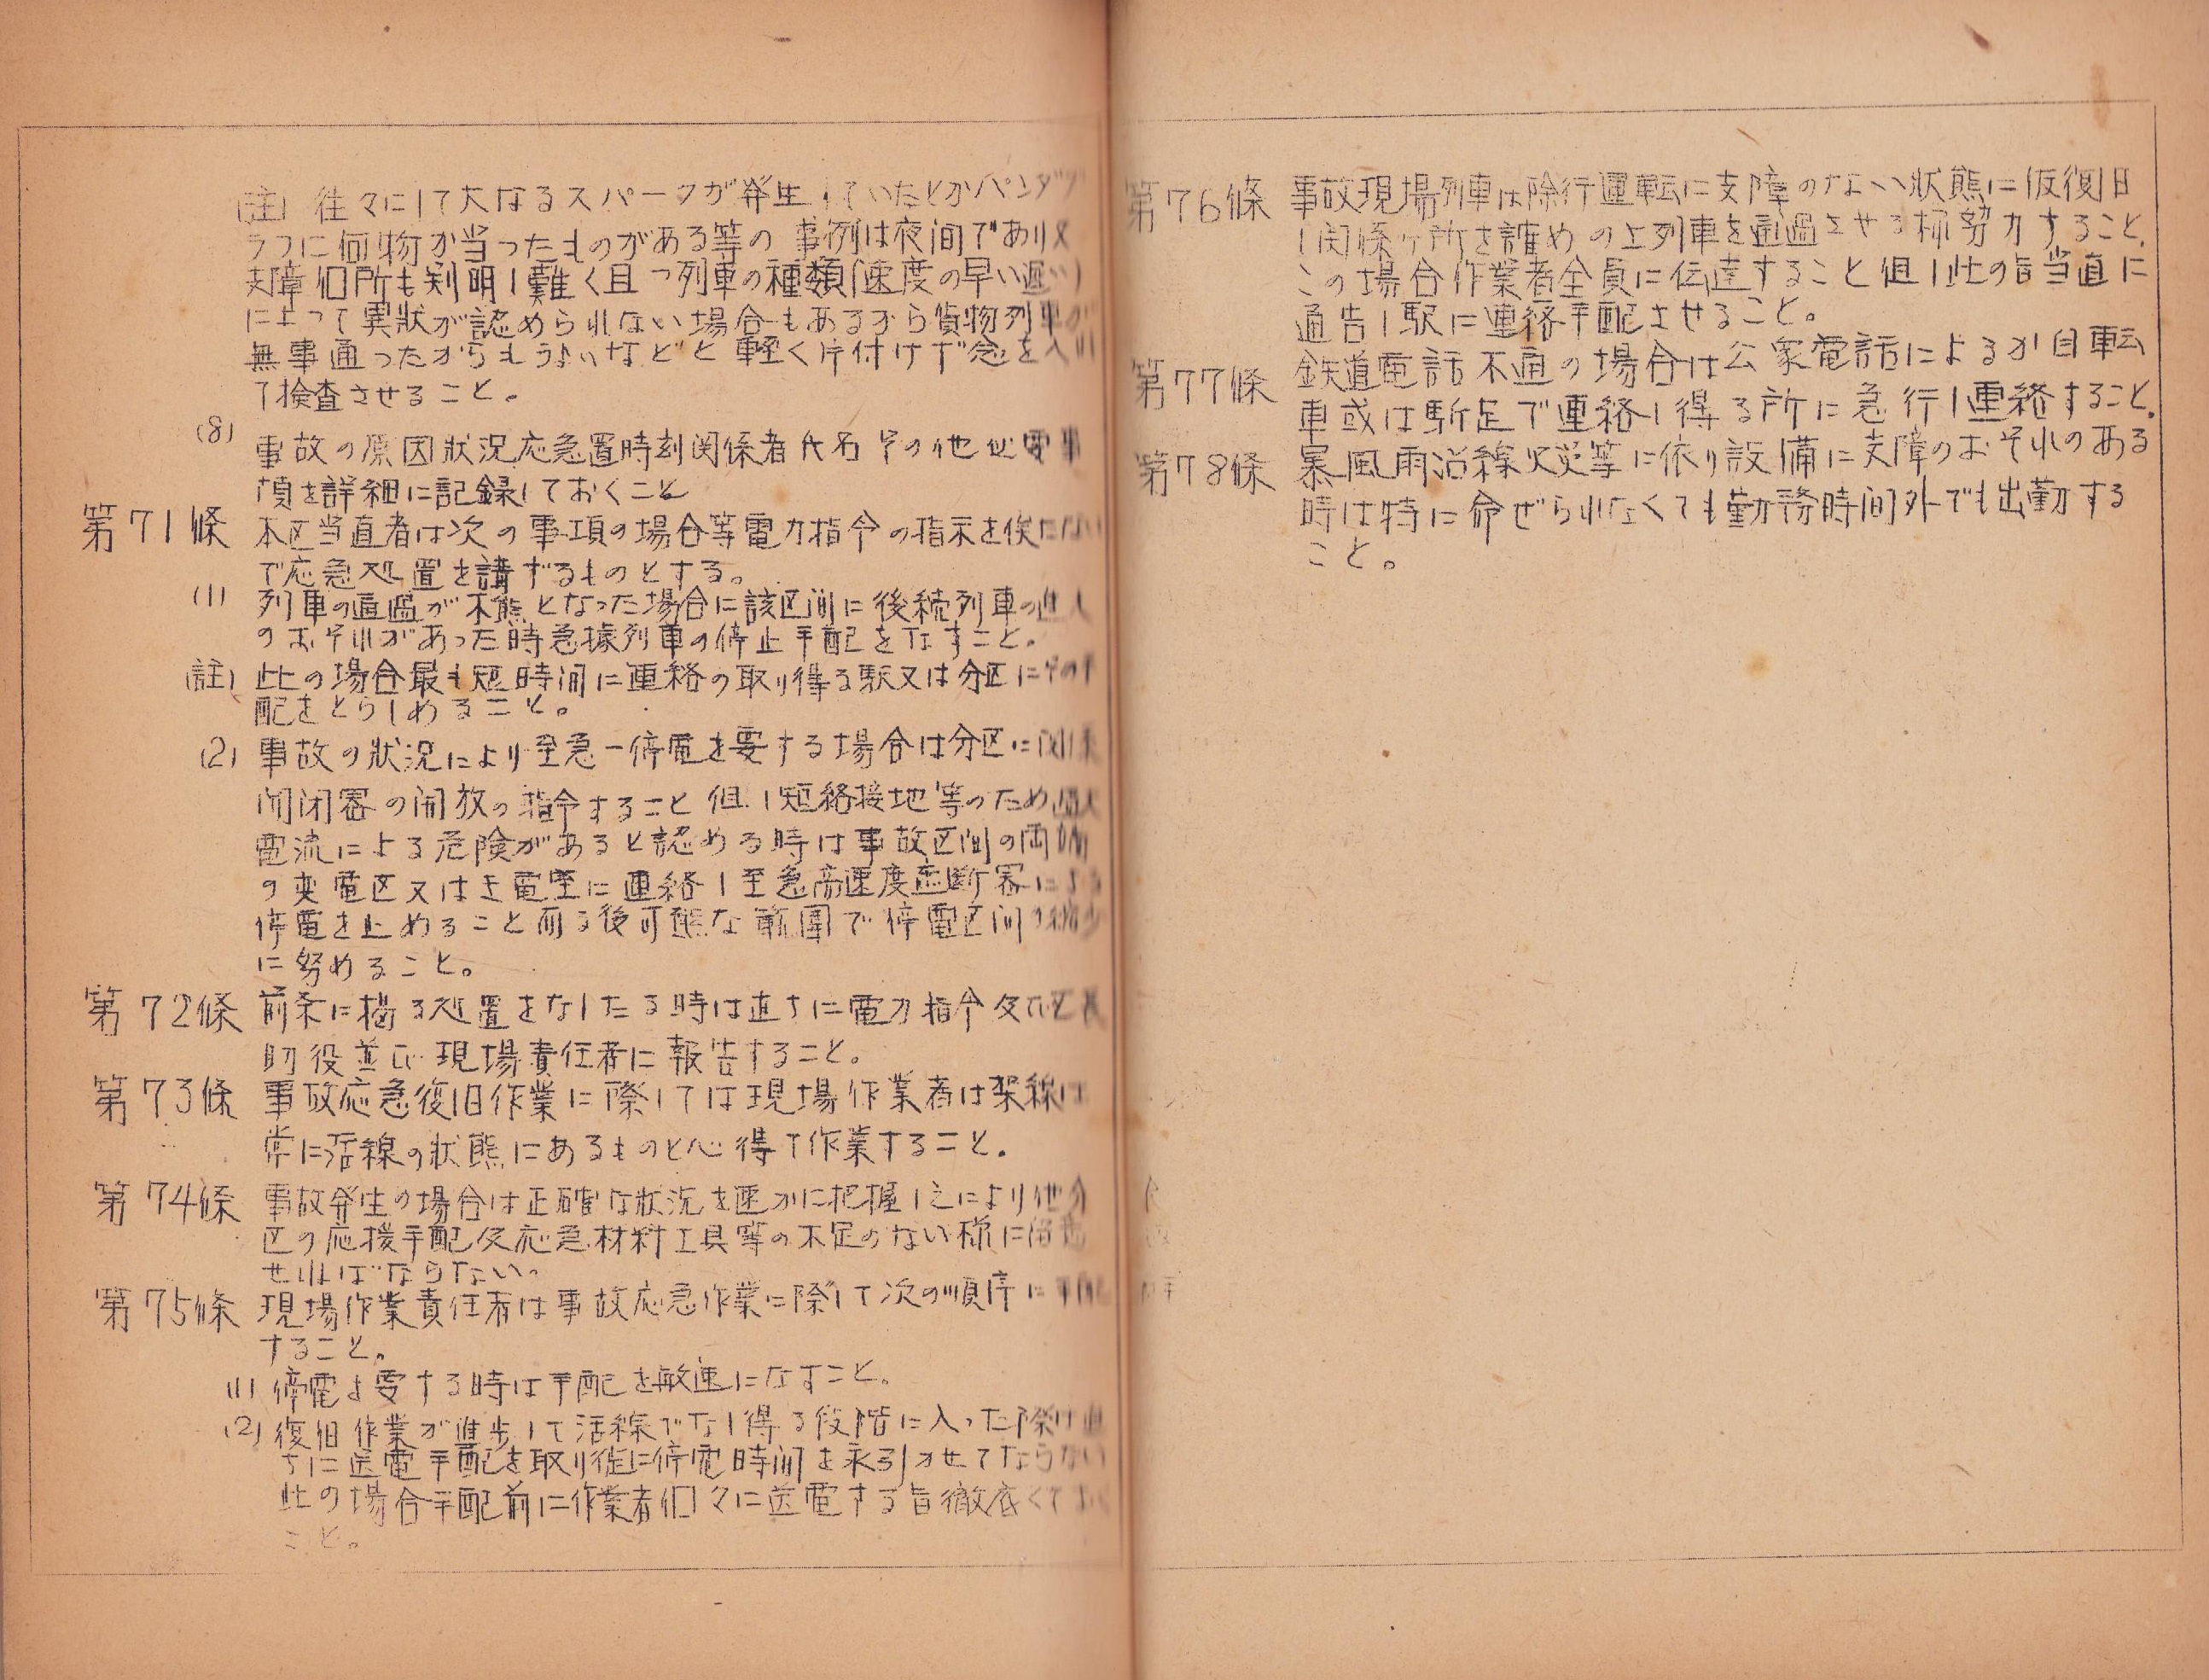 (註) 往々にして大なるスパークが発生していたとかパンタグ
ラフに何物か当ったものがある等の事例は夜間であり又
支障個所も判明し難く且つ列車の種類(速度の早い遅い)
によって異状が認められない場合もあるから貨物列車が
無事通ったからもうよいなどと軽く片付けず念を入れ
て検査させること。
(8) 事故の原因状況応急置時刻関係者氏名その他必要事
項を詳細に記録しておくこと
第71條 本区当直者は次の事項の場合等電力指令の指示を俟たない
で応急処置を講ずるものとする。
(1) 列車の通過が不能となった場合に該区間に後続列車の進入
のおそれがあった時急據列車の停止手配をなすこと。
(註) 此の場合最も短時間に連絡の取り得る駅又は分区にその手
配をとらしめること。
(2) 事故の状況により至急一停電を要する場合は分区に関係
開閉器の開放の指令すること但し短絡接地等のため過大
電流による危険があると認める時は事故区間の両端
の変電区又はき電室に連絡し至急高速度遮断器による
停電を止めること而る後可能な範囲で停電区間の縮少
に努めること。
第72條 前条に掲る処置をなしたる時は直ちに電力指令及び区長
助役並び現場責任者に報告すること。
第73條 事故応急復旧作業に際しては現場作業者は架線は
常に活線の状態にあるものと心得て作業すること。
第74條 事故発生の場合は正確な状況を速かに把握し之により他分
区の応援手配及応急材料工具等の不足のない様に
せねばならない。
第75條 現場作業責任者は事故応急作業に際して次の順序に手配
すること。
(1) 停電を要する時は手配を敏速になすこと。
(2) 復旧作業が進歩して活線でなし得る段階に入った際は直
ちに送電手配を取り徒に停電時間を永引かせてならない
此の場合手配前に作業者個々に送電する旨徹底くておく
こと。
第76條 事故現場列車は除行運転に支障のない状態に仮復旧
し関係ヶ所を確めの上列車を通過させる様努力すること、
この場合作業者全員に伝達すること但し此の旨当直に
通告し駅に連絡手配させること。
第77條 鉄道電話不通の場合は公家電話によるか自転
車或は駈足で連絡し得る所に急行し連絡すること。
第78條 暴風雨沿線火災等に依り設備に支障のおそれのある
時は特に命ぜられなくても勤務時間外でも出勤する
こと。